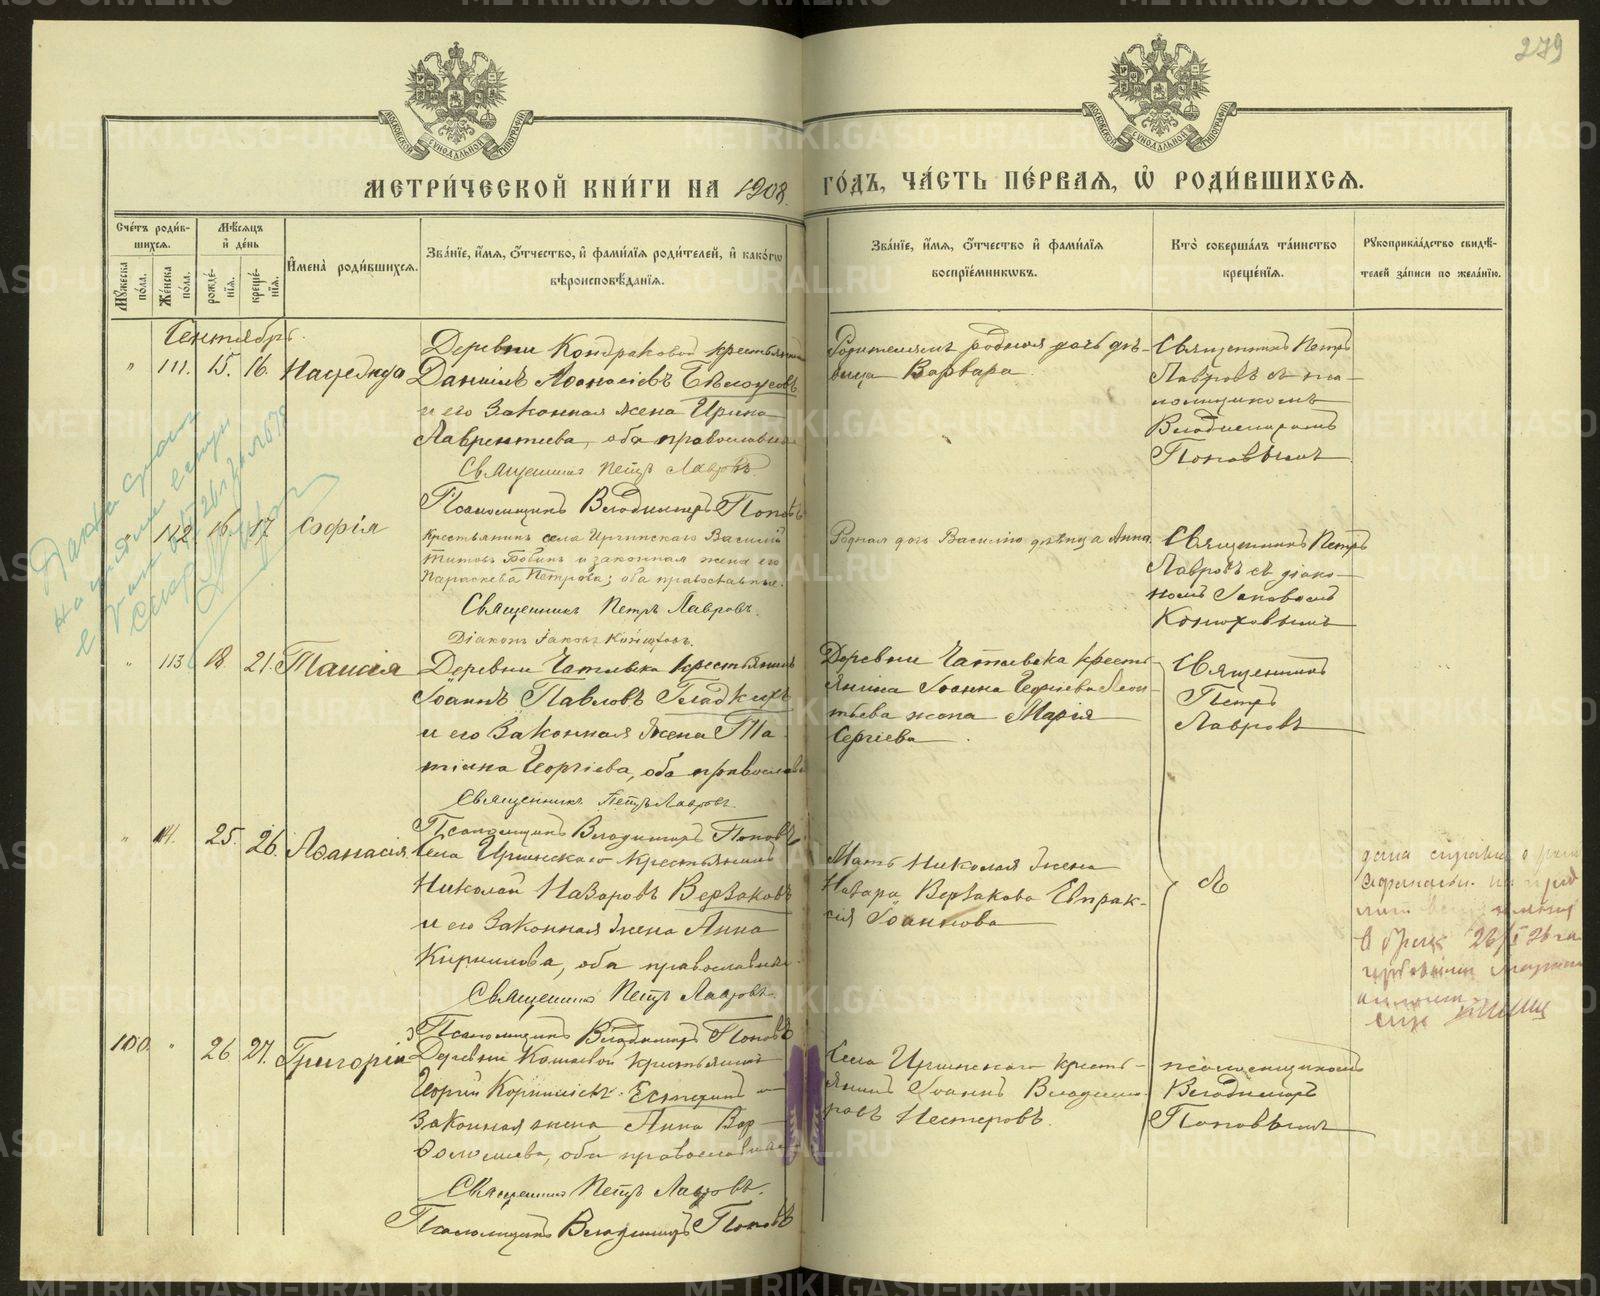 279
МЕТРИ́ЧЕСКОЙ КНИ́ГИ НА 1908 ГО́ДЪ, ЧА́СТЬ ПЕ́РВАЯ, Ѽ РОДИ́ВШИХСЯ.
Сче́тъ роди́в-
шихся.
Мꙋ́жеска по́ла.
Же́нска по́ла.
Мѣ́сяцъ
и҆ де́нь
рожде́-
нїѧ.
креще́-
нїѧ.
И҆мена̀ роди́вшихсѧ.
Зва́нїе, и҆́мѧ, ѻ҆́тчество, и҆ фами́лїѧ роди́телей, и҆ како́гѡ
вѣроисповѣ́данїѧ.
Зва́нїе, и҆́мѧ, ѻ҆́тчество и҆ фами́лїѧ
воспрїе́мникѡвъ.
Кто̀ соверша́лъ та́инство
креще́нїѧ.
Рꙋкоприкла́дство свидѣ́-
телей за́писи по жела́нїю.
Сентябрь.
" 111. 15. 16. Надежда
Деревни Кондраковой крестьянинъ
Даніилъ Аѳанасіевъ Бѣлоусовъ
и его законная жена Ирина
Лаврентіева, оба православные
Священникъ Петръ Лавровъ
Псаломщикъ Владимиръ Поповъ
Родителямъ родная дочь дѣ-
вица Варвара.
Священникъ Петръ
Лавровъ съ пса-
ломщикомъ
Владимиромъ
Поповымъ
" 112. 16. 17. Софія
Крестьянинъ села Иргинскаго Василій
Титовъ и законная жена его
Параскева Петрова; оба православные.
Священникъ Петръ Лавровъ.
Діаконъ Іаковъ Конюховъ.
Родная дочь Василію дѣвица Анна.
Священникъ Петръ
Лавровъ съ діако-
номъ Іаковомъ
Конюховымъ
" 113 18. 21. Таисія
Деревни крестьянинъ
Іоаннъ Павловъ Гладкихъ
и его законная жена Та-
тіана Георгіева, оба православн
Священникъ Петръ Лавровъ.
Псаломщикъ Владимиръ Поповъ
Деревни крестья-
янина Іоанна Георгіева Леон-
тьева жена Марія
Сергіева
Священникъ
Петръ
Лавровъ
" 114. 25. 26. Аѳанасія.
Села Иргинскаго крестьянинъ
Николай Назаровъ Верзаковъ
и его законная жена Анна
Кириллова, оба православные.
Священникъ Петръ Лавровъ.
Псаломщикъ Владимиръ Поповъ
Мать Николая жена
Назара Верзакова Евпрак-
сія Іоаннова
дана справка о
в 26/I 26 г
100. " 26 27. Григорій
Деревни крестьянинъ
законная жена Анна Вар-
ѳоломеева, оба православные
Священникъ Петръ Лавровъ.
Псаломщикъ Владимиръ Поповъ
Села Иргинскаго кресть-
янинъ Іоаннъ Владими-
ровъ Нестеровъ.
псаломщикомъ
Владимиръ
Поповымъ
METRIKI.GASO-URAL.RU